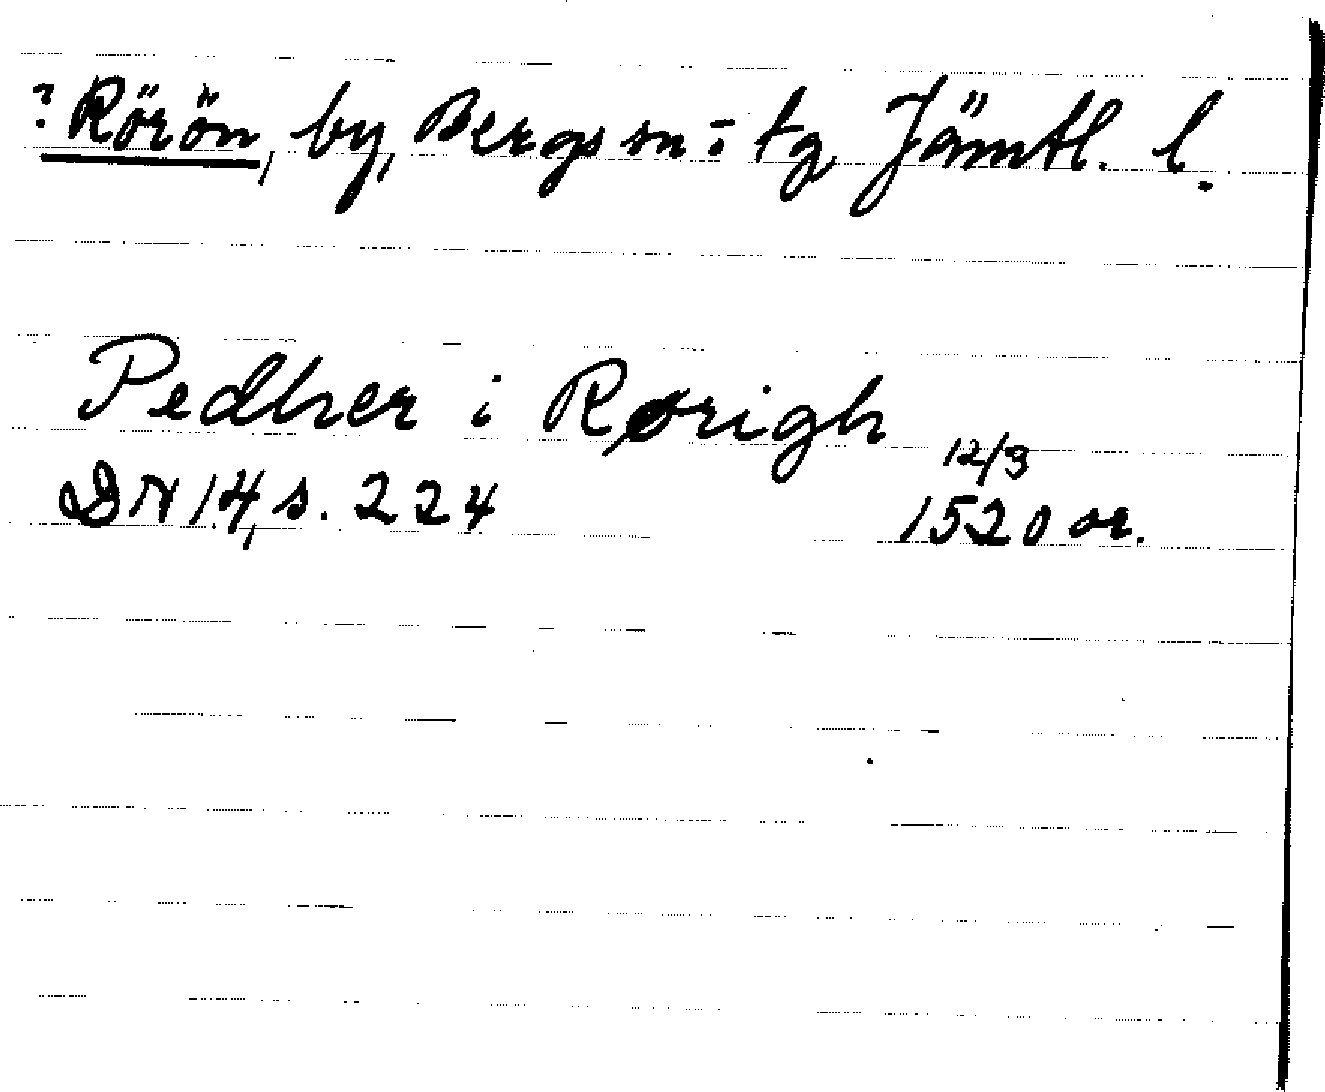 ? Rörön, by, Bergs sn ÷ tg Jämtl. l.
Pedher i Rørigh
12/3
DN 14, s. 224 1520 or.